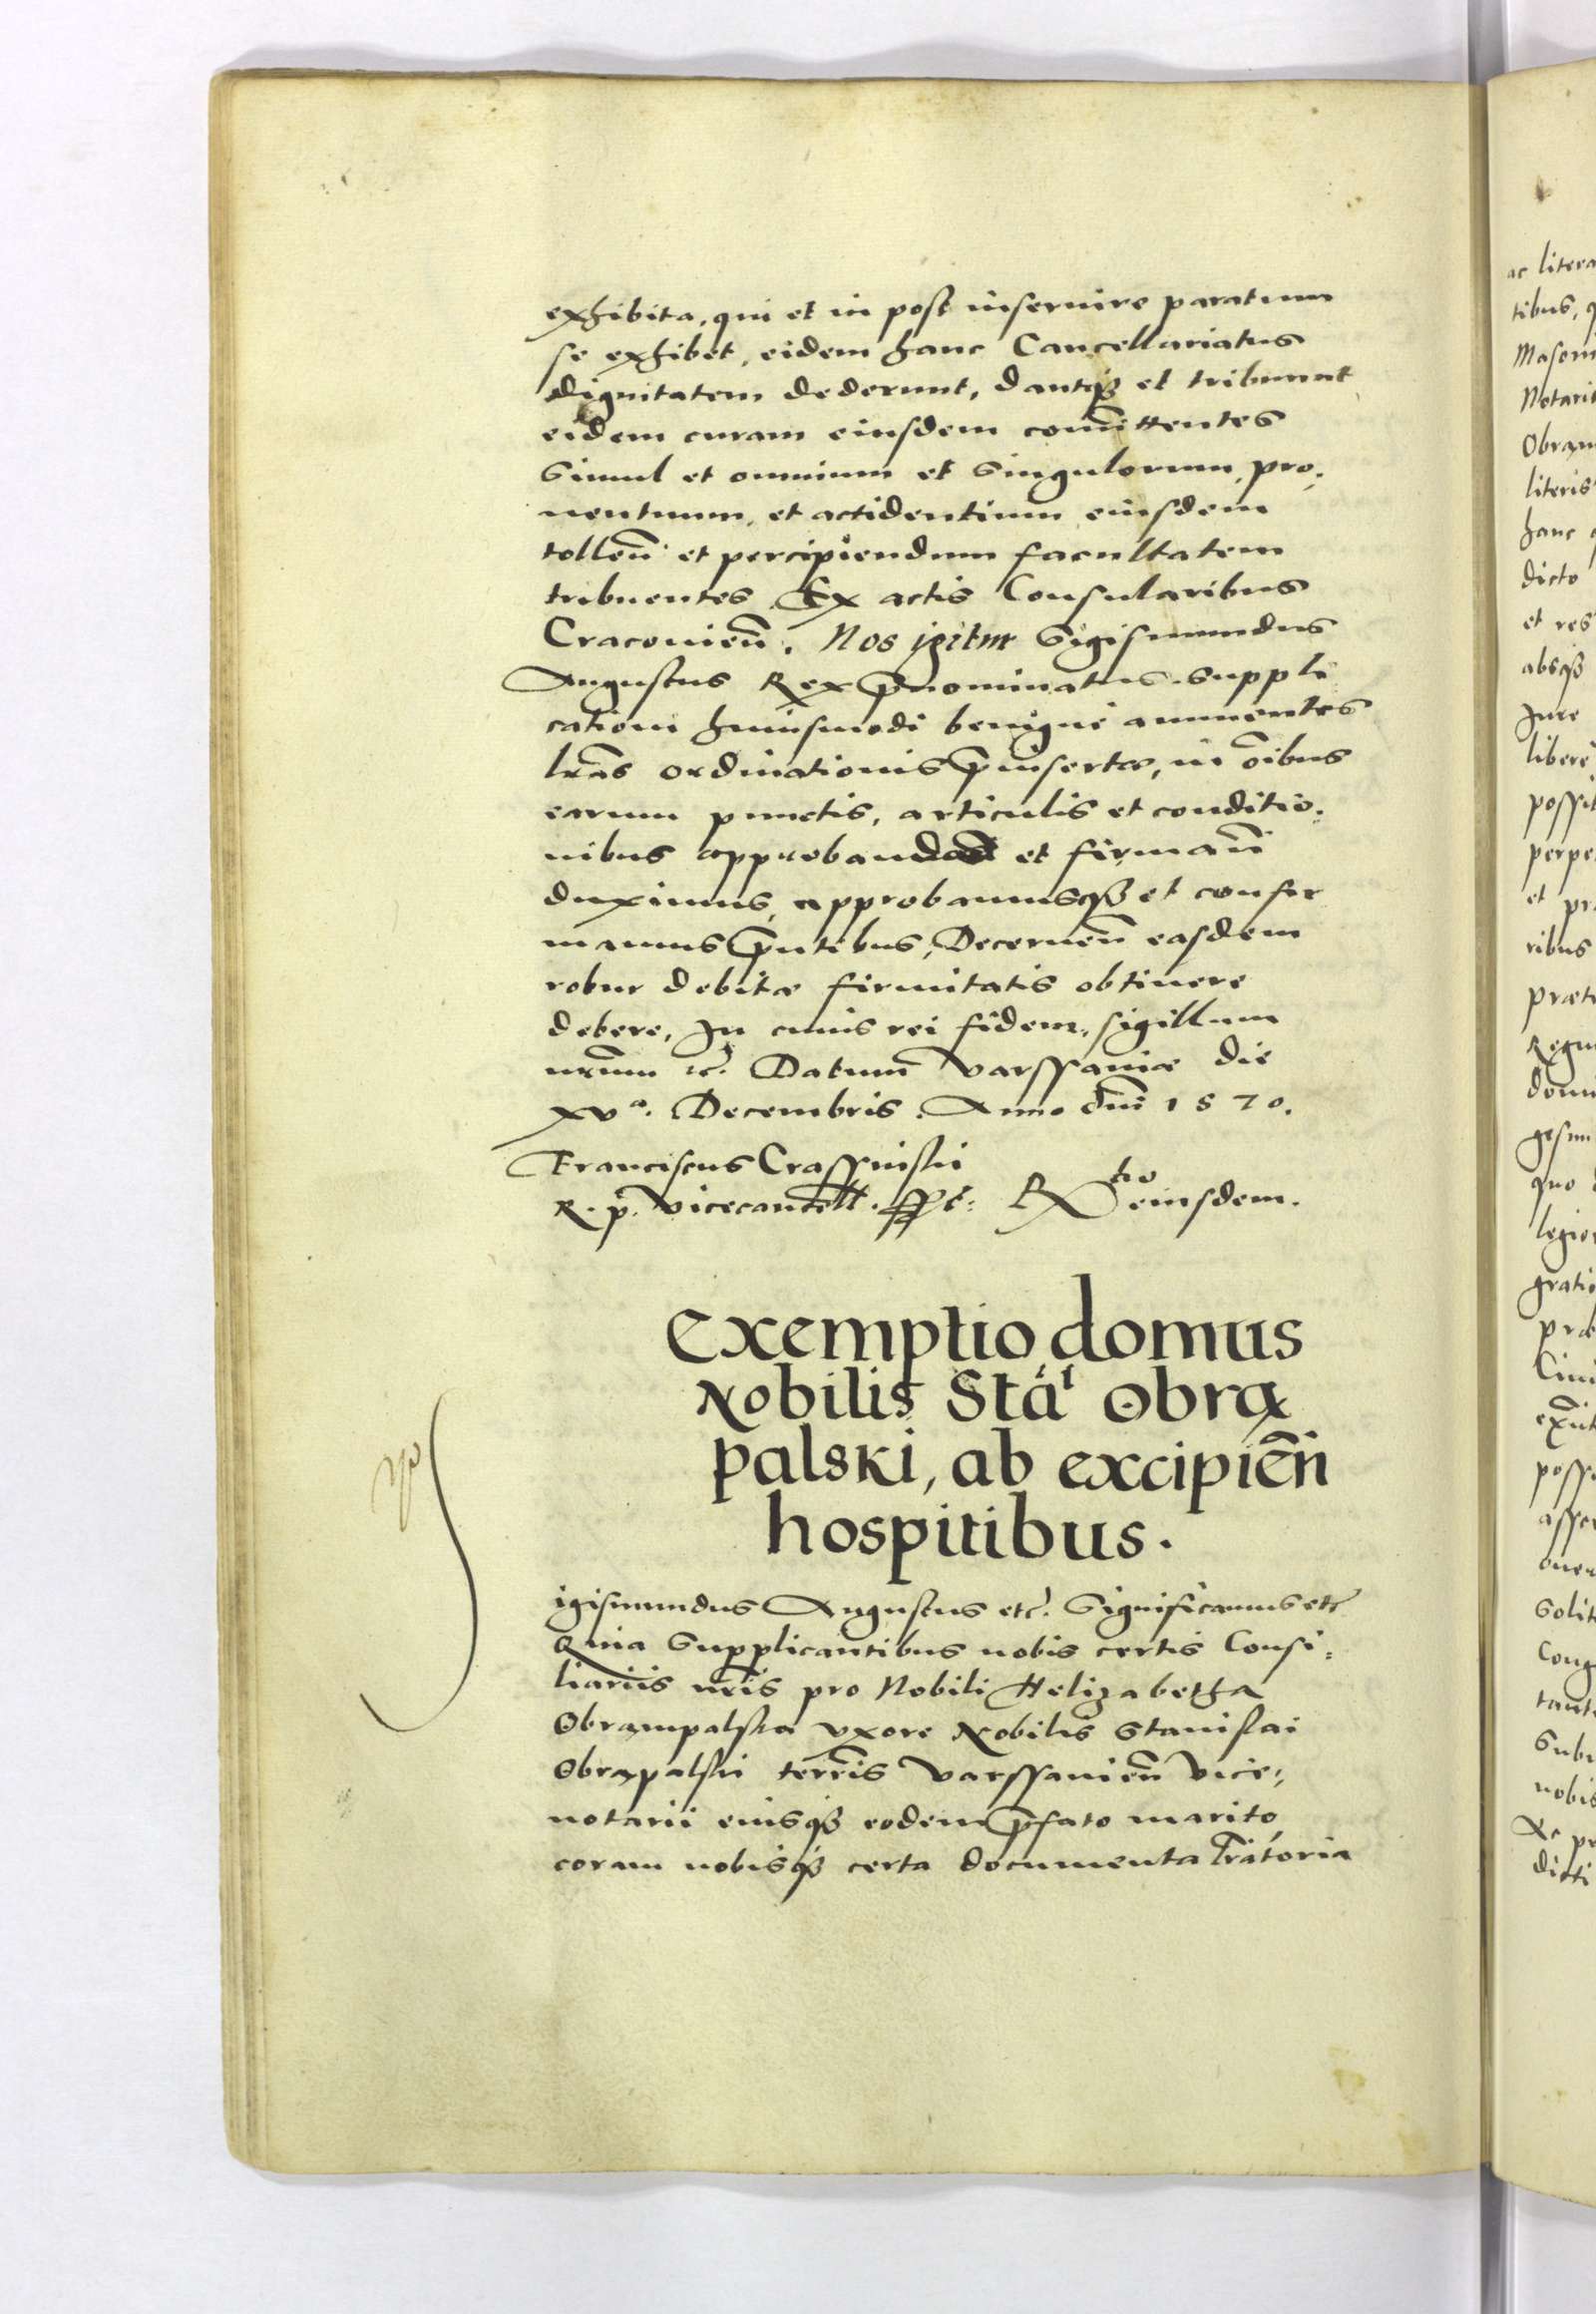 exhibita, qui et in post inseruire paratum
se exhibet, eidem hanc Cancellariatus
dignitatem dederunt, dantqȝ et tribuunt
eidem curam eiusdem com̄ittentes
Simul et omnium et Singulorum, pro,
uentuum, et actidentium eiusdem
tolleñ et percipiendum facultatem
tribuentes Ex actis Consularibus
Cracouieñ. Nos igitur Sigismundus
Augustus Rex p̄nominatus. suppli
cationi huiusmodi benigne annuentes
lrãs ordinationis p̄insertas, in õibus
earum punctis, articulis et conditio,
nibus approbandas et firmañ
duximus, approbamusqȝ et confir
mamus p̄ntibus, Decerneñ easdem
robur debitæ firmitatis obtinere
debere, In cuius rei fidem, sigillum
nr̃um etc̃. Datum Varssauiæ die
xvª. Decembris. Anno dñi 1570.
Franciscus Crassinski
R. p. Vicecancell. sst: Rtio eiusdem.
Exemptio domus
Nobilis Stãt Obrą
palski, ab excipieñ
hospitibus.
S
igismundus Augustus etc̃. Significamus etc̃
Quia Supplicantibus nobis certis Consi,
liariis nr̃is pro Nobili Helizabetha
Obrąmpalska vxore Nobilis Stanislai
Obrąpalski terrẽis Varssauieñ Vice,
notarii eiusqȝ eodem p̄fato marito
coram nobisqȝ certa documenta lr̃atoria
ac litera
tibus, q
Masoui
Notarii
Obrąm
literis
hanc
dicto
et res
absqȝ
Jure
libere
possit
perpe
et pr
ribus
præt
Regn
domu
gesim
quo
legio
gratio
præ
Ciui
posse
asse
oner
Solit
Cong
tant
Sub
nobis
Ac pr
dicti